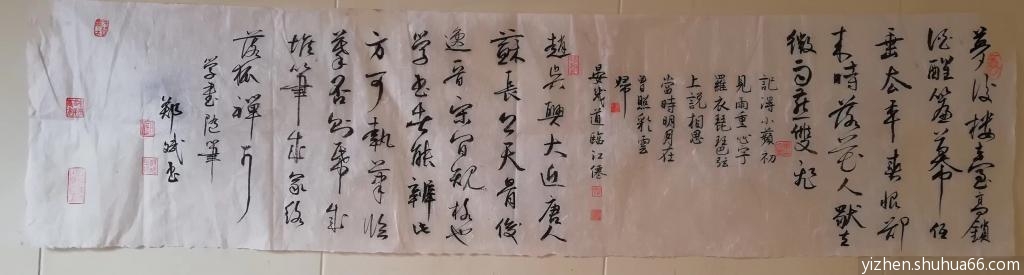 夢後樓臺高鎖
酒醒簾幕低
垂去年春恨卻
来時落花人獨立
微雨燕雙飛
記得小蘋初
見兩重心字
羅衣琵琶弦
上說相思
當時明月在
曾照彩雲
歸
晏幾道臨江僊
趙吳興大近唐人
蘇長公天骨俊
逸晉宋間規格也
学書者能辨此
方可執筆臨
摹否則紙成
堆筆成冢終
落狐禅耳
学書隨筆
鄭斌書
yizhen.shuhua66.com